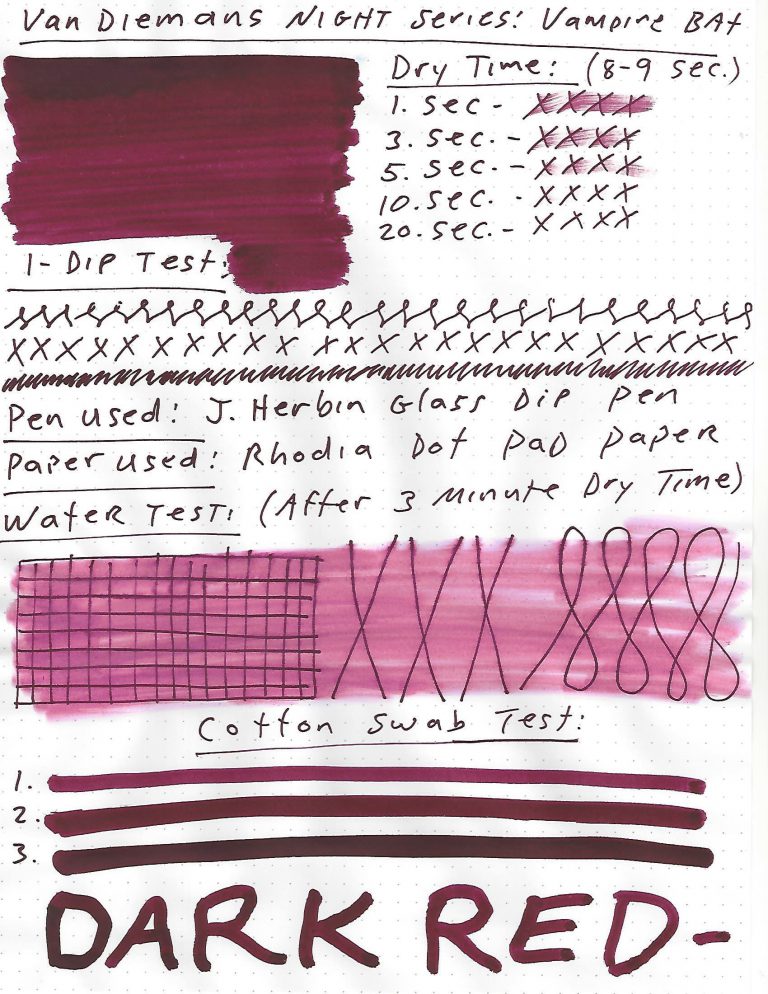 Van Diemans NIGHT Series: Vampire BAt
Dry Time: (8-9 sec.)
1. sec - X X X X
3. sec. - X X X X
5. sec. - X X X X
10. sec. - X X X X
20. sec. - X X X X
1- Dip Test:
X X X X X X X X X X X X X X X X X X X X X X X X
Pen used: J. Herbin Glass Dip Pen
Paper used: Rhodia Dot Pad paper
Water Test: (After 3 Minute Dry Time)
Cotton Swab Test:
1.
2.
3.
DARK RED-